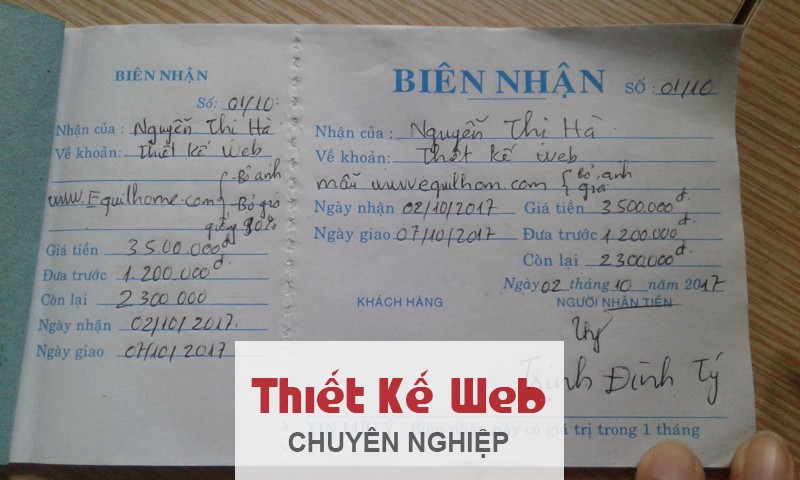 BIÊN NHẬN
Số: 01/10:
Nhận của : Nguyễn Thi Hà
Về khoản: Thiết kế Web
www.Equilhome.com { - Bỏ anh
- Bỏ giỏ
giống 90%
Giá tiền 3.500.000đ
Đưa trước 1.200.000đ.
Còn lại 2 300 000
Ngày nhận 02/10/2017.
Ngày giao 07/10/2017
BIÊN NHẬN SỐ : 01/10
Nhận của : Nguyễn Thi Hà.
Về khoản: Thiết kế web
mẫu www.equilhom.com { Bỏ, anh
giỏ
Ngày nhận 02/10/2017 Giá tiền 3 500.000đ.
Ngày giao 07/10/2017 Đưa trước 1 200.000đ.
Còn lại 2 300.000đ.
Ngày 02 tháng 10 năm 2017
KHÁCH HÀNG NGƯỜI NHẬN TIỀN
Trịnh Đình Tý
XIN LƯU Ý: Biên nhận này có giá trị trong 1 tháng
Thiết Kế Web
CHUYÊN NGHIỆP